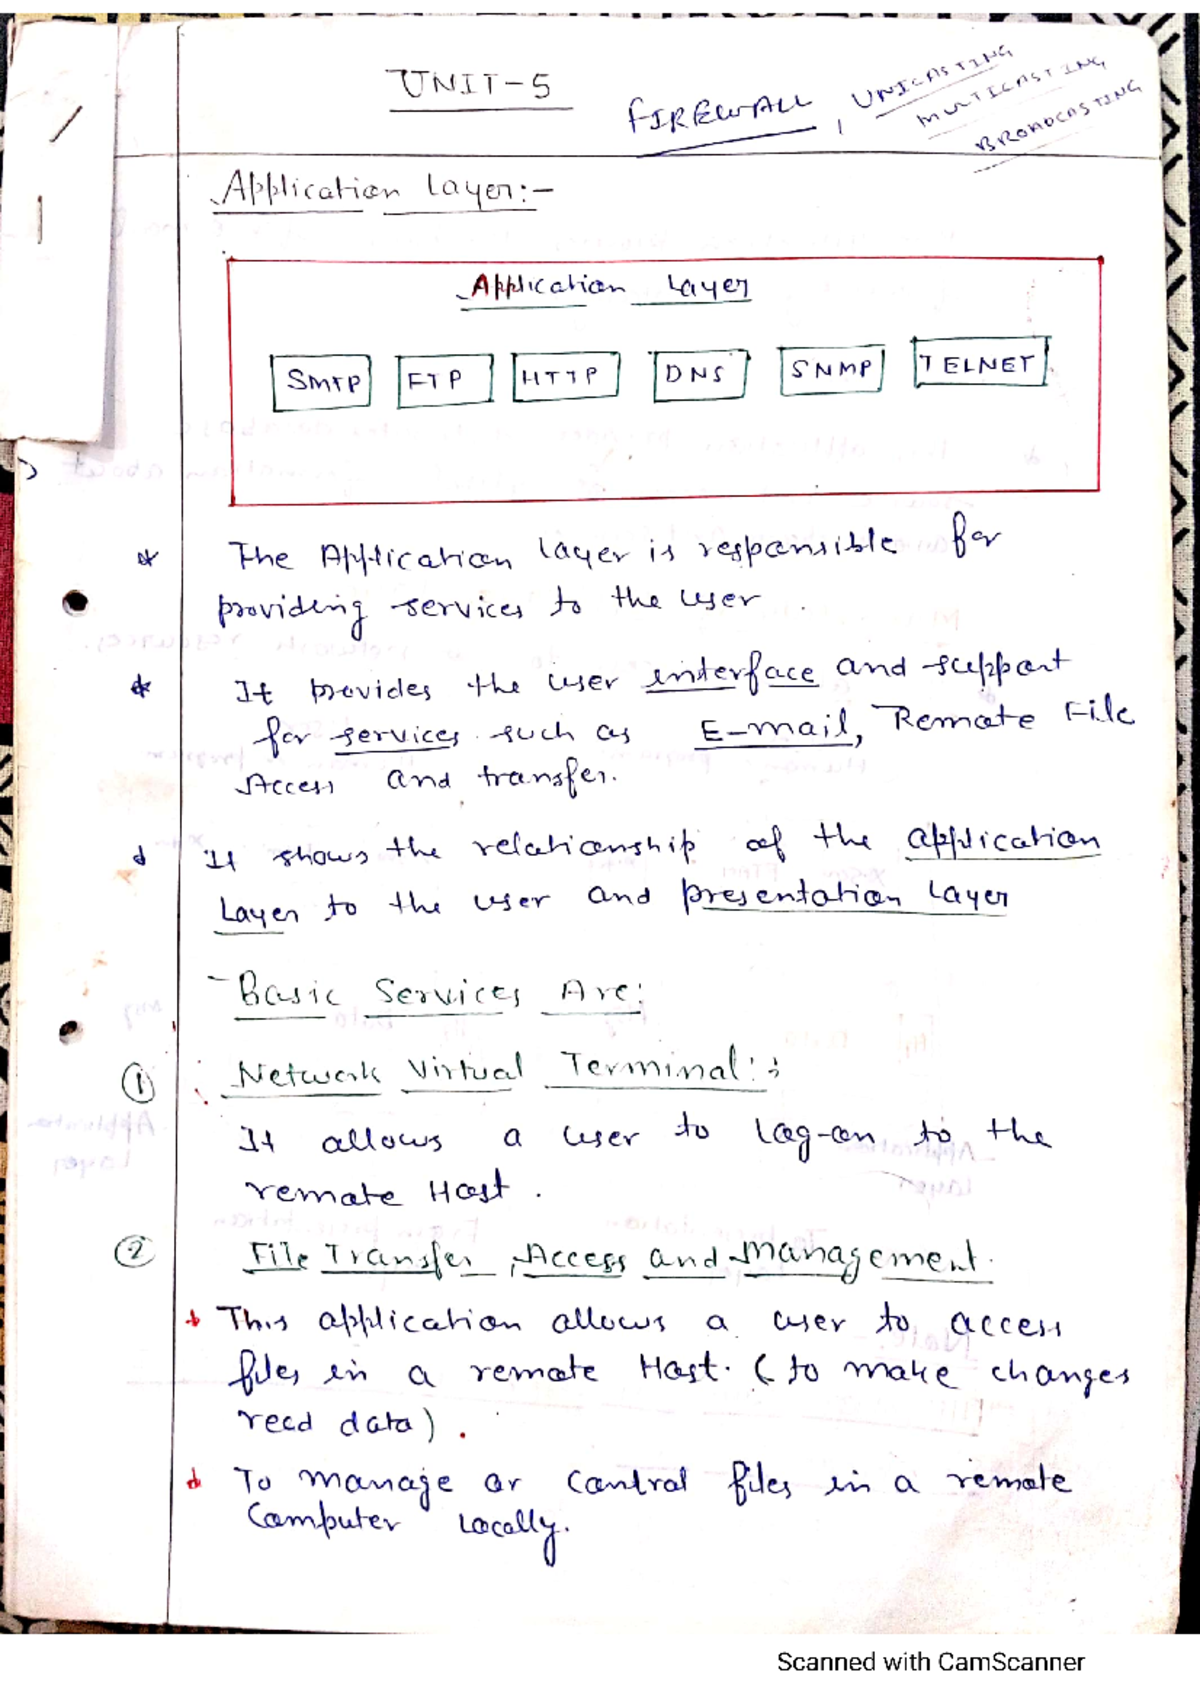 UNIT-5
FIREWALL, UNICASTING
MULTICASTING
BROADCASTING
Application Layer:-
Application Layer
SMTP FTP HTTP DNS SNMP TELNET
The Application layer is responsible for
providing services to the user.
It provides the user interface and support
for services such as E-mail, Remote File
Access and transfer.
It shows the relationship of the application
Layer to the user and presentation Layer
Basic Services Are:
① Network Virtual Terminal:-
It allows a user to log-on to the
remote Host.
② File Transfer, Access and Management.
This application allows a user to access
files in a remote Host. (to make changes
read data).
To manage or control files in a remote
Computer Locally.
Scanned with CamScanner